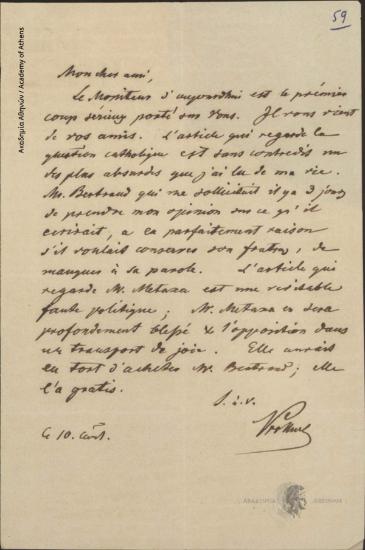 59
Ακαδημία Αθηνών / Academy of Athens
Mon cher ami,
Le Moniteur d'aujourdhui est le prémier
coup sérieux porté sur Vous. Il vous vient
de vos amis. L'article qui regarde la
question catholique est sans contredit un
des plus absurdes que j'ai lu de ma vie.
Mr. Bertrand qui me sollicitait il y a 3 jours
de prendre mon opinion sur ce qu'il
ecrirait, a eu parfaitement raison
s'il voulait conserver son, de
manquer à sa parole. L'article qui
regarde Mr. Metaxa est une véritable
faute politique; Mr. Metaxa en sera
profondement blessé & l'opposition dans
un transport de joie. Elle aurait
eu tort d'acheter Mr. Bertrand; elle
l'a gratis.
t. à. v.
Ce 10.
ΑΚΑΔΗΜΙΑ ΑΘΗΝΩΝ